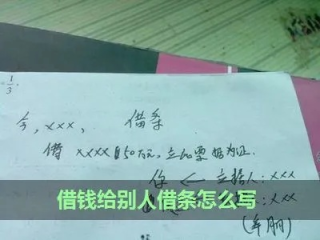 1/3.
今,xxx, 借条
借 xxxx 50万元,立此票据为证.
你 ← 立据人:xxx
:xxx
借钱给别人借条怎么写